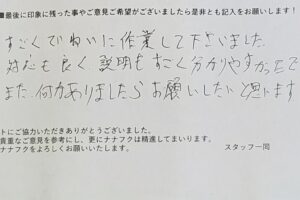 ■最後に印象に残った事やご意見ご希望がございましたら是非とも記入をお願いします！
すごくていねいに作業して下さいました。
対応も良く説明もすごく分かりやすかったです
また何かありましたらお願いしたいと思います
トにご協力いただきありがとうございました。
貴重なご意見を参考にし、更にナナフクは精進してまいります。
ナナフクをよろしくお願いいたします。
スタッフ一同